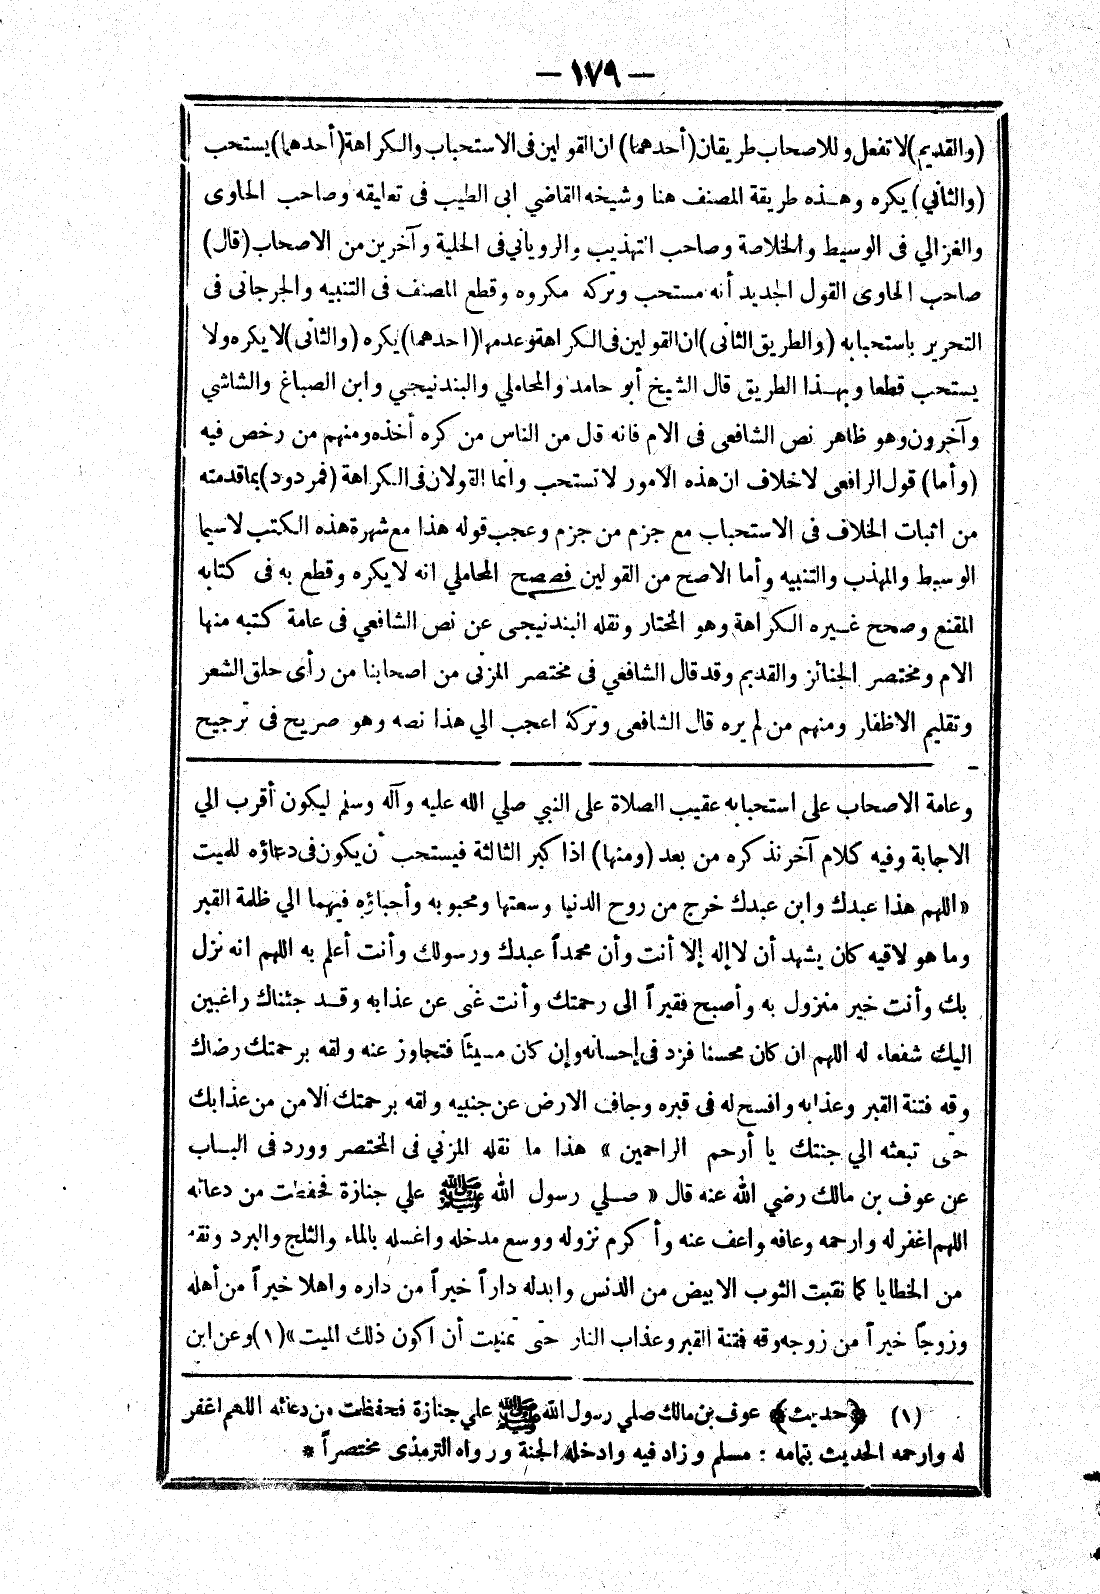 — ١٧٩ —
(والقديم) لا تفعل وللاصحاب طريقان (أحدهما) ان القولين فى الاستحباب والكراهة (أحدهما) يستحب
(والثاني) يكره وهذه طريقة المصنف هنا وشيخه القاضي ابى الطيب فى تعليقه وصاحب الحاوى
والغزالي فى الوسيط والخلاصة وصاحب التهذيب والروياني فى الحلية وآخرين من الاصحاب (قال)
صاحب الحاوى القول الجديد أنه مستحب وتركه مكروه وقطع المصنف فى التنبيه والجرجانى فى
التحرير باستحبابه (والطريق الثانى) ان القولين فى الكراهة وعدمها (احدهما) يكره (والثانى) لا يكره ولا
يستحب قطعا وبهذا الطريق قال الشيخ أبو حامد والمحاملي والبندنيجي وابن الصباغ والشاشي
وآخرون وهو ظاهر نص الشافعى فى الام فانه قال من الناس من كره أخذه ومنهم من رخص فيه
(وأما) قول الرافعى لا خلاف ان هذه الامور لا تستحب وانما القولان فى الكراهة (فمردود) بما قدمته
من اثبات الخلاف فى الاستحباب مع جزم من جزم وعجب قوله هذا مع شهرة هذه الكتب لا سيما
الوسيط والمهذب والتنبيه وأما الاصح من القولين فصحح المحاملي انه لا يكره وقطع به فى كتابه
المقنع وصحح غيره الكراهة وهو المختار ونقله البندنيجى عن نص الشافعي فى عامة كتبه منها
الام ومختصر الجنائز والقديم وقد قال الشافعي فى مختصر المزنى من اصحابنا من رأى حلق الشعر
وتقليم الاظفار ومنهم من لم يره قال الشافعى وتركه اعجب الي هذا نصه وهو صريح فى ترجيح
وعامة الاصحاب على استحبابه عقيب الصلاة على النبي صلي الله عليه وآله وسلم ليكون أقرب الي
الاجابة وفيه كلام آخر نذكره من بعد (ومنها) اذا كبر الثالثة فيستحب أن يكون فى دعاؤه للميت
«اللهم هذا عبدك وابن عبدك خرج من روح الدنيا وسعتها ومحبوبه وأحباؤه فيهما الي ظلمة القبر
وما هو لاقيه كان يشهد أن لا إله إلا أنت وأن محمداً عبدك ورسولك وأنت أعلم به اللهم انه نزل
بك وأنت خير منزول به وأصبح فقيراً الى رحمتك وأنت غنى عن عذابه وقد جئناك راغبين
اليك شفعاء له اللهم ان كان محسنا فزد فى إحسانه وإن كان مسيئاً فتجاوز عنه ولقه برحمتك رضاك
وقه فتنة القبر وعذابه وافسح له فى قبره وجاف الارض عن جنبيه ولقه برحمتك الامن من عذابك
حتى تبعثه الي جنتك يا أرحم الراحمين» هذا ما نقله المزني فى المختصر وورد فى الباب
عن عوف بن مالك رضي الله عنه قال «صلي رسول الله ﷺ علي جنازة فحفظت من دعائه
اللهم اغفر له وارحمه وعافه واعف عنه وأكرم نزوله ووسع مدخله واغسله بالماء والثلج والبرد ونقه
من الخطايا كما نقيت الثوب الابيض من الدنس وابدله داراً خيراً من داره واهلا خيراً من أهله
وزوجاً خيراً من زوجه وقه فتنة القبر وعذاب النار حتى تمنيت أن اكون ذلك الميت» (١) وعن ابن
(١) ﴿حديث﴾ عوف بن مالك صلي رسول الله ﷺ علي جنازة فحفظت من دعائه اللهم اغفر
له وارحمه الحديث بتمامه : مسلم وزاد فيه وادخله الجنة ورواه الترمذى مختصراً *